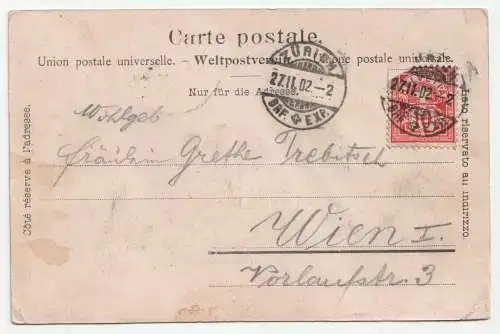 Carte postale.
Union postale universelle. – Weltpostverein. – Unione postale universale.
Nur für die Adresse.
Côté réservé à l'adresse.
Lato riservato au indirizzo.
ZÜRICH
27.II.02.–2
BRF. EXP.
27.II.02.–2
10
Wohlgeb
Fräulein Grethe Trebitsch
Wien I.
Vorlaufstr. 3